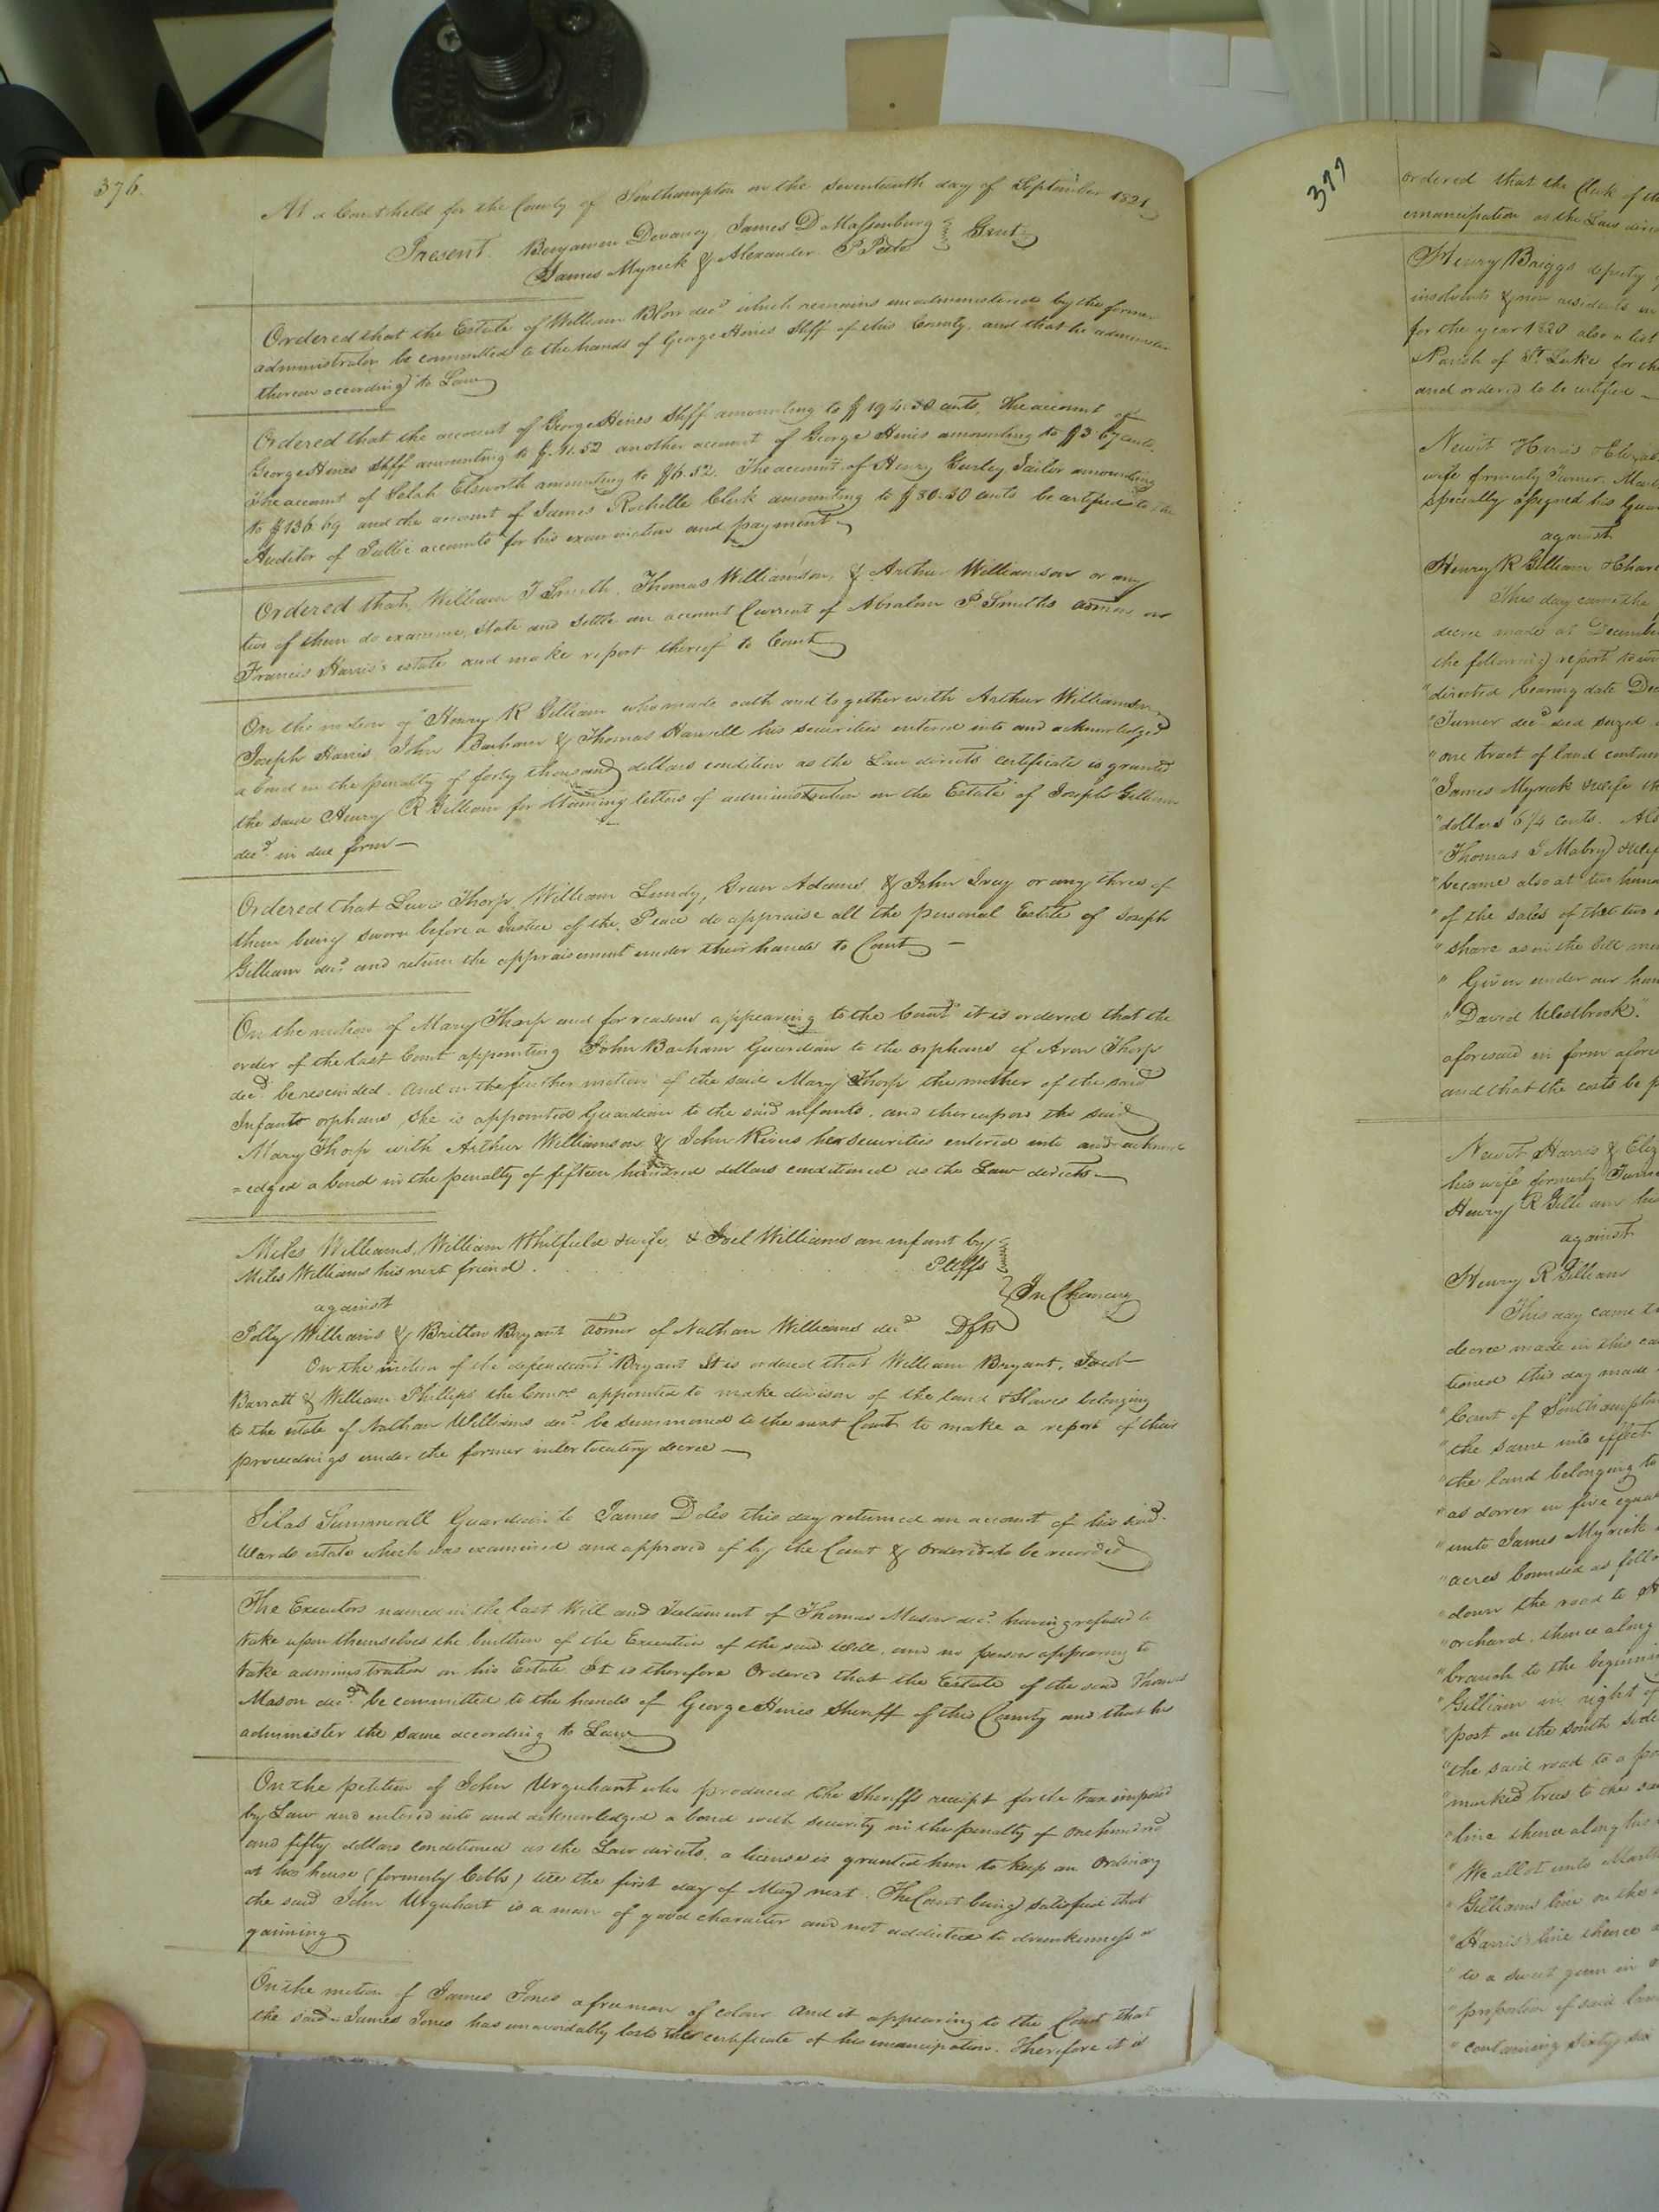 376.
At a Court held for the County of Southampton on the Seventeenth day of September 1821
Present. Benjamin Devany, James D Massenburg } Gent.
James Myrick & Alexander P Peete
Ordered that the Estate of William Blow decd. which remains unadministered by the former
administrator be committed to the hands of George Hines Shff of this County, and that he administer
thereon according to Law
Ordered that the account of George Hines Shff amounting to $194.50 cents, the account of
George Hines Shff amounting to $ 41.52 another account of George Hines amounting to $3.67 cents.
The account of Selah Elsworth amounting to $6.52. The account of Henry Gurley Jailor amounting
to $136.69 and the account of James Rochelle Clerk amounting to $80.30 cents be certified to the
Auditor of Public accounts for his examination and payment
Ordered that William J Smith, Thomas Williamson, & Arthur Williamson or any
two of them do examine, state and settle an account Current of Absalom P. Smiths admon on
Francis Harris's estate and make report thereof to Court
On the motion of Henry R Gilliam who made oath and together with Arthur Williamson
Joseph Harris John Barham & Thomas Harwell his securities entered into and acknowledged
a bond in the penalty of forty thousand dollars condition as the Law directs certificate is granted
the said Henry R Gilliam for obtaining letters of administration on the Estate of Joseph Gilliam
decd. in due form
Ordered that Lewis Thorp, William Lundy, Adams, & John Ivey or any three of
them being sworn before a Justice of the Peace do appraise all the personal Estate of Joseph
Gilliam decd. and return the appraisement under their hands to Court
On the motion of Mary Thorp and for reasons appearing to the Court it is ordered that the
order of the last Court appointing John Barham Guardian to the orphans of Aron Thorp
decd. be rescinded. And on the further motion of the said Mary Thorp the mother of the said
Infants orphans she is appointed Guardian to the said infants, and thereupon the said
Mary Thorp with Arthur Williamson & John Rivers her securities entered into and acknowl
=edged a bond in the penalty of fifteen hundred dollars conditioned as the Law directs
Miles Williams, William Whitfield & wife, & Joel Williams an infant by
Miles Williams his next friend. Pltffs
against } In Chancery
Polly Williams & Britton Bryant admr of Nathan Williams decd Dfts
On the motion of the defendant Bryant It is ordered that William Bryant, Jacob
Barratt & William Phillips the Comrs appointed to make division of the land & Slaves belonging
to the estate of Nathan Williams decd. be summoned to the next Court to make a report of their
proceedings under the former interlocutory decree
Silas Summerell Guardian to James Doles this day returned an account of his said
wards estate which was examined and approved of by the Court & ordered to be recorded
The Executors named in the last Will and Testament of Thomas Mason decd. having refused to
take upon themselves the burthen of the Execution of the said Will, and no person appearing to
take administration on his Estate. It is therefore Ordered that the Estate of the said Thomas
Mason decd. be committed to the hands of George Hines Sheriff of this County and that he
administer the same according to Law
On the petition of John Urquhart who produced the Sheriffs receipt for the tax imposed
by Law and entered into and acknowledged a bond with security in the penalty of one hundred
and fifty dollars conditioned as the Law directs, a license is granted him to keep an Ordinary
at his house (formerly Cobbs) till the first day of May next. The Court being satisfied that
the said John Urquhart is a man of good character and not addicted to drunkenness or
gaming
On the motion of James Jones a free man of colour And it appearing to the Court that
the said James Jones has unavoidably lost the certificate of his emancipation. Therefore it is
377
ordered that the Clerk of
emancipation as the Law
Henry Briggs deputy
insolvents & non residents
for the year 1820 also a list
Parish of St. Luke for the
and ordered to be certified
Newit Harris & Elizab
wife formerly Turner,
specially assigned his Guar
against
Henry R Gilliam
This day came the
decree made at December
the following report to wit
"directed bearing date Dec
"Turner decd. died seized
"one tract of land contain
"James Myrick & wife
"dollars 6 1/4 cents. Als
"Thomas J Mabry & wife
"became also at two hun
"of the sales of the two
"share as on the bill
"Given under our han
"David Westbrook."
aforesaid in form afore
and that the costs be p
Newit Harris & Eliz
his wife formerly Turn
Henry R Gilliam
against
Henry R Gilliam
This day came
decree made in this ca
tioned this day made
"Court of Southampton
"the same into effect
"the land belonging to
"as dower in five equal
"unto James Myrick
"acres bounded as follo
"down the road to
"orchard, thence along
"branch to the beginni
"Gilliam in right of
"post on the south side
"the said road to a
"marked trees to the
"line thence along his
"We allot unto
"Gilliams line on the
"Harris's line thence
"to a sweet gum in
"proportion of said
"containing sixty six